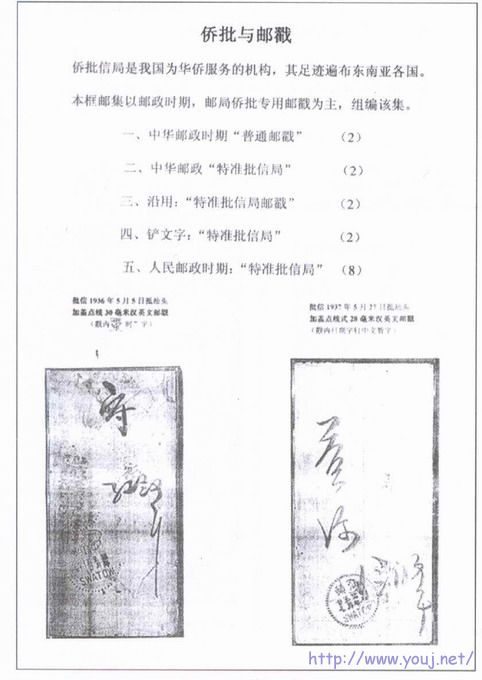 侨批与邮戳
侨批信局是我国为华侨服务的机构，其足迹遍布东南亚各国。
本框邮集以邮政时期，邮局侨批专用邮戳为主，组编该集。
一、中华邮政时期“普通邮戳” （2）
二、中华邮政“特准批信局” （2）
三、沿用：“特准批信局邮戳” （2）
四、铲文字：“特准批信局” （2）
五、人民邮政时期：“特准批信局”（8）
批信 1936 年 5 月 5 日抵汕头
加盖点线 30 毫米汉英文邮戳
（戳内 时”字）
批信 1937 年 5 月 日抵汕头
加盖点线式 28 毫米汉英文邮戳
SWATOW
SWATOW
http://www.youj.net/